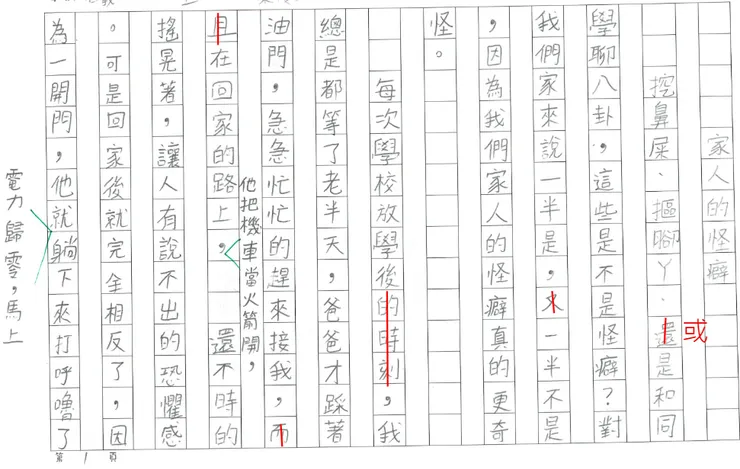 家人的怪癖
挖鼻屎、摳腳丫、還是和同
或
學聊八卦,這些是不是怪癖?對
我們家來說一半是,又一半不是
,因為我們家人的怪癖真的更奇
怪。
每次學校放學後的時刻,我
總是都等了老半天,爸爸才踩著
油門,急急忙忙的趕來接我,而
且在回家的路上,還不時的
他把機車當火箭開,
搖晃著,讓人有說不出的恐懼感
。可是回家後就完全相反了,因
為一開門,他就躺下來打呼嚕了
電力歸零,馬上
第1頁